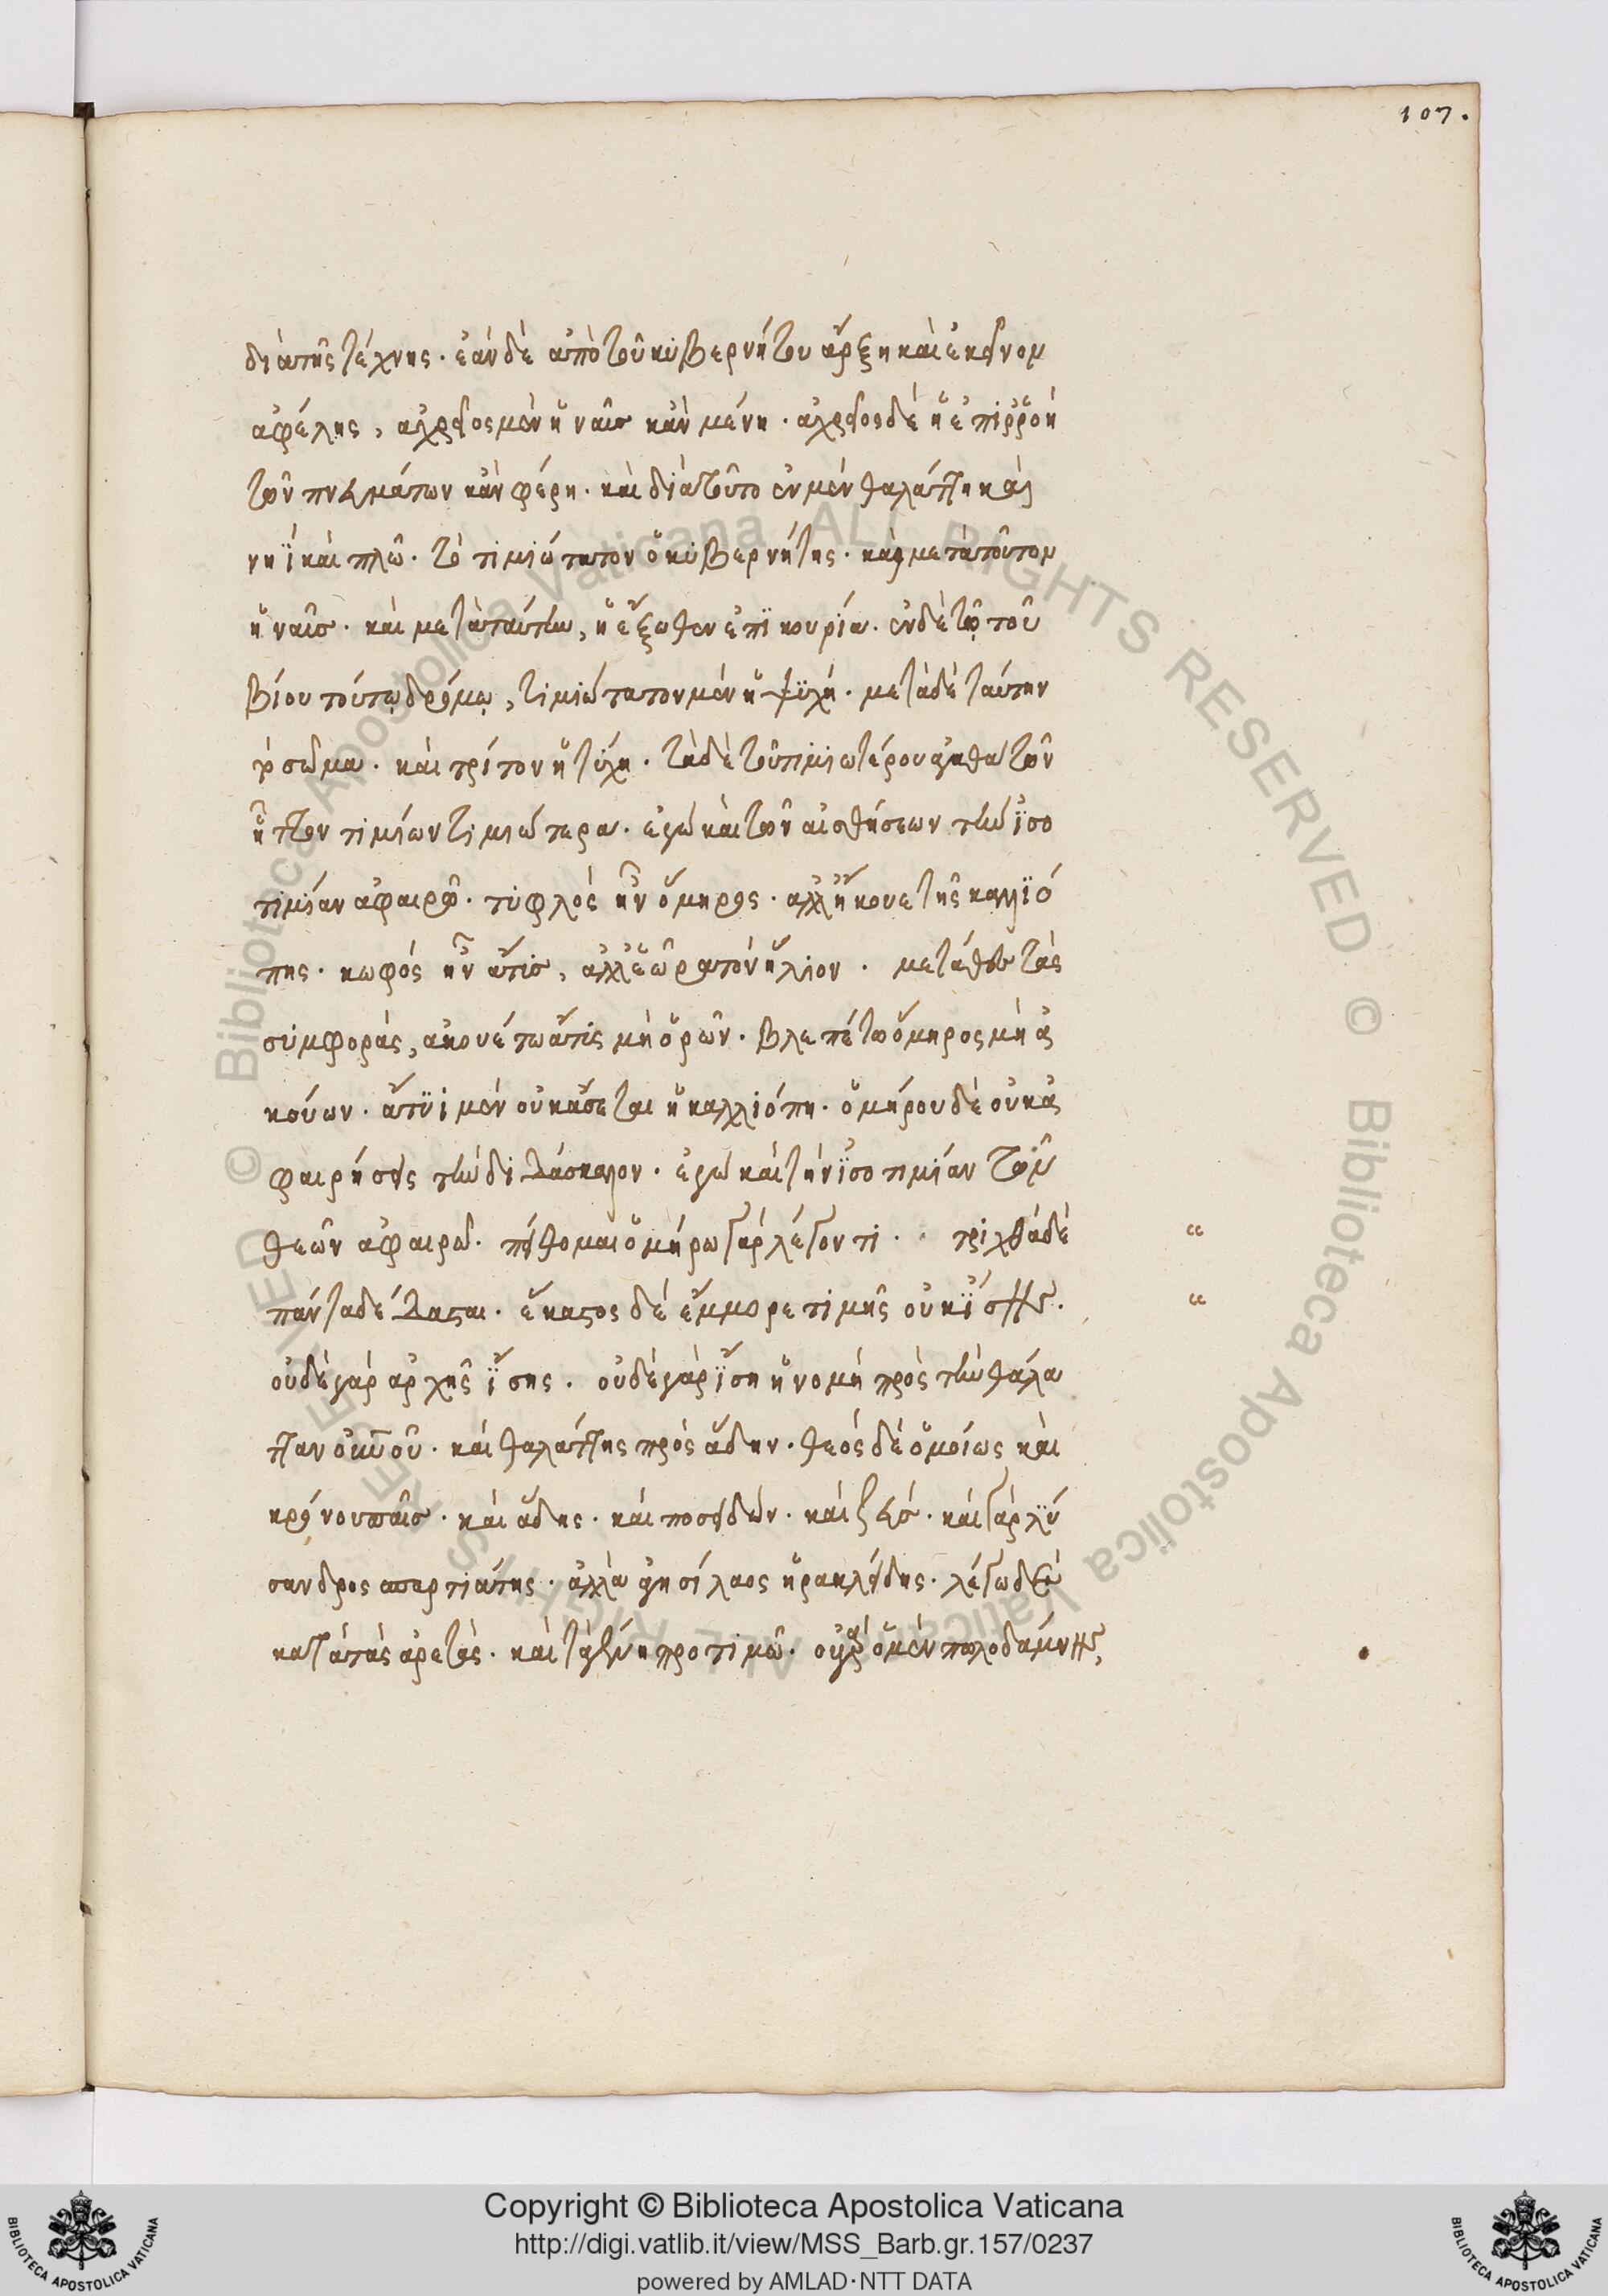 107.
διὰ τῆς τέχνης. ἐὰν δὲ ἀπὸ τοῦ κυβερνήτου ἄρξῃ καὶ ἐκεῖνον
ἀφέλῃς, ἀχρεῖος μὲν ἡ ναῦς κἂν μένῃ. ἀχρεῖος δὲ ἡ ἐπιρροὴ
τῶν πνευμάτων κἂν φέρῃ. καὶ διὰ τοῦτο ἐν μὲν θαλάττῃ καὶ
νηῒ καὶ πλῷ. τὸ τιμιώτατον ὁ κυβερνήτης. καὶ μετὰ τοῦτον
ἡ ναῦς. καὶ μετὰ ταύτην, ἡ ἔξωθεν ἐπικουρία. ἐν δὲ τῷ τοῦ
βίου τούτῳ δρόμῳ, τιμιώτατον μὲν ἡ ψυχή. μετὰ δὲ ταύτην
τὸ σῶμα. καὶ τρίτον ἡ τύχη. τὰ δὲ τοῦ τιμιωτέρου ἀγαθὰ τῶν
ἧττον τιμίων τιμιώτερα. ἐγὼ καὶ τῶν αἰσθήσεων τὴν ἰσο
τιμίαν ἀφαιρῶ. τυφλὸς ἦν ὅμηρος. ἀλλ' ἤκουε τῆς καλλιό
πης. κωφὸς ἦν ἄτυς, ἀλλ' ἑώρα τὸν ἥλιον. μετάθες τὰς
συμφοράς, ἀκουέτω ἄτυς μὴ ὁρῶν. βλεπέτω ὅμηρος μὴ ἀ
κούων. ἄτυϊ μὲν οὐκ ᾄσεται ἡ καλλιόπη. ὁμήρου δὲ οὐκ ἀ
φαιρήσεις τὴν διδάσκαλον. ἐγὼ καὶ τὴν ἰσοτιμίαν τῶν
θεῶν ἀφαιρῶ. πείθομαι ὁμήρῳ γὰρ λέγοντι. τριχθὰ δὲ "
πάντα δέδασται. ἕκαστος δὲ ἔμμορε τιμῆς οὐκ ἴσης. "
οὐδὲ γὰρ ἀρχῆς ἴσης. οὐδὲ γὰρ ἴση ἡ νομὴ πρὸς τὴν θάλα
τταν οὐνοῦ. καὶ θαλάττης πρὸς ᾅδην. θεὸς δὲ ὁμοίως καὶ
κρόνου παῖς. καὶ ᾅδης. καὶ ποσειδῶν. καὶ ζεύς. καὶ γὰρ λύ
σανδρος σπαρτιάτης. ἀλλὰ ἀγησίλαος ἡρακλείδης. λέγω δὲ
κατὰ τὰς ἀρετάς. καὶ τὰ γένη προτιμῶ. οὐχ ὁ μὲν πωλοδάμνης,
Copyright © Biblioteca Apostolica Vaticana
http://digi.vatlib.it/view/MSS_Barb.gr.157/0237
powered by AMLAD·NTT DATA
BIBLIOTECA APOSTOLICA VATICANA
BIBLIOTECA APOSTOLICA VATICANA
© Biblioteca Apostolica Vaticana ALL RIGHTS RESERVED © Biblioteca Apostolica Vaticana ALL RIGHTS RESERVED